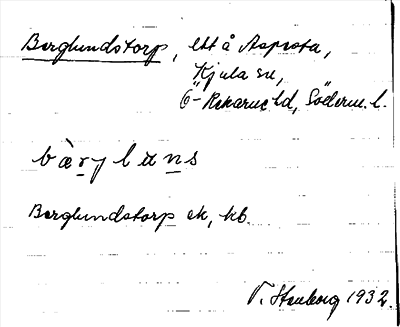 Berglundstorp, ltt å Aspesta,
Kjula sn,
Ö-Rekarne hd, Söderm. l.
bæ̀rjluns
Berglundstorp ek, kb
V. Stenborg 1932.